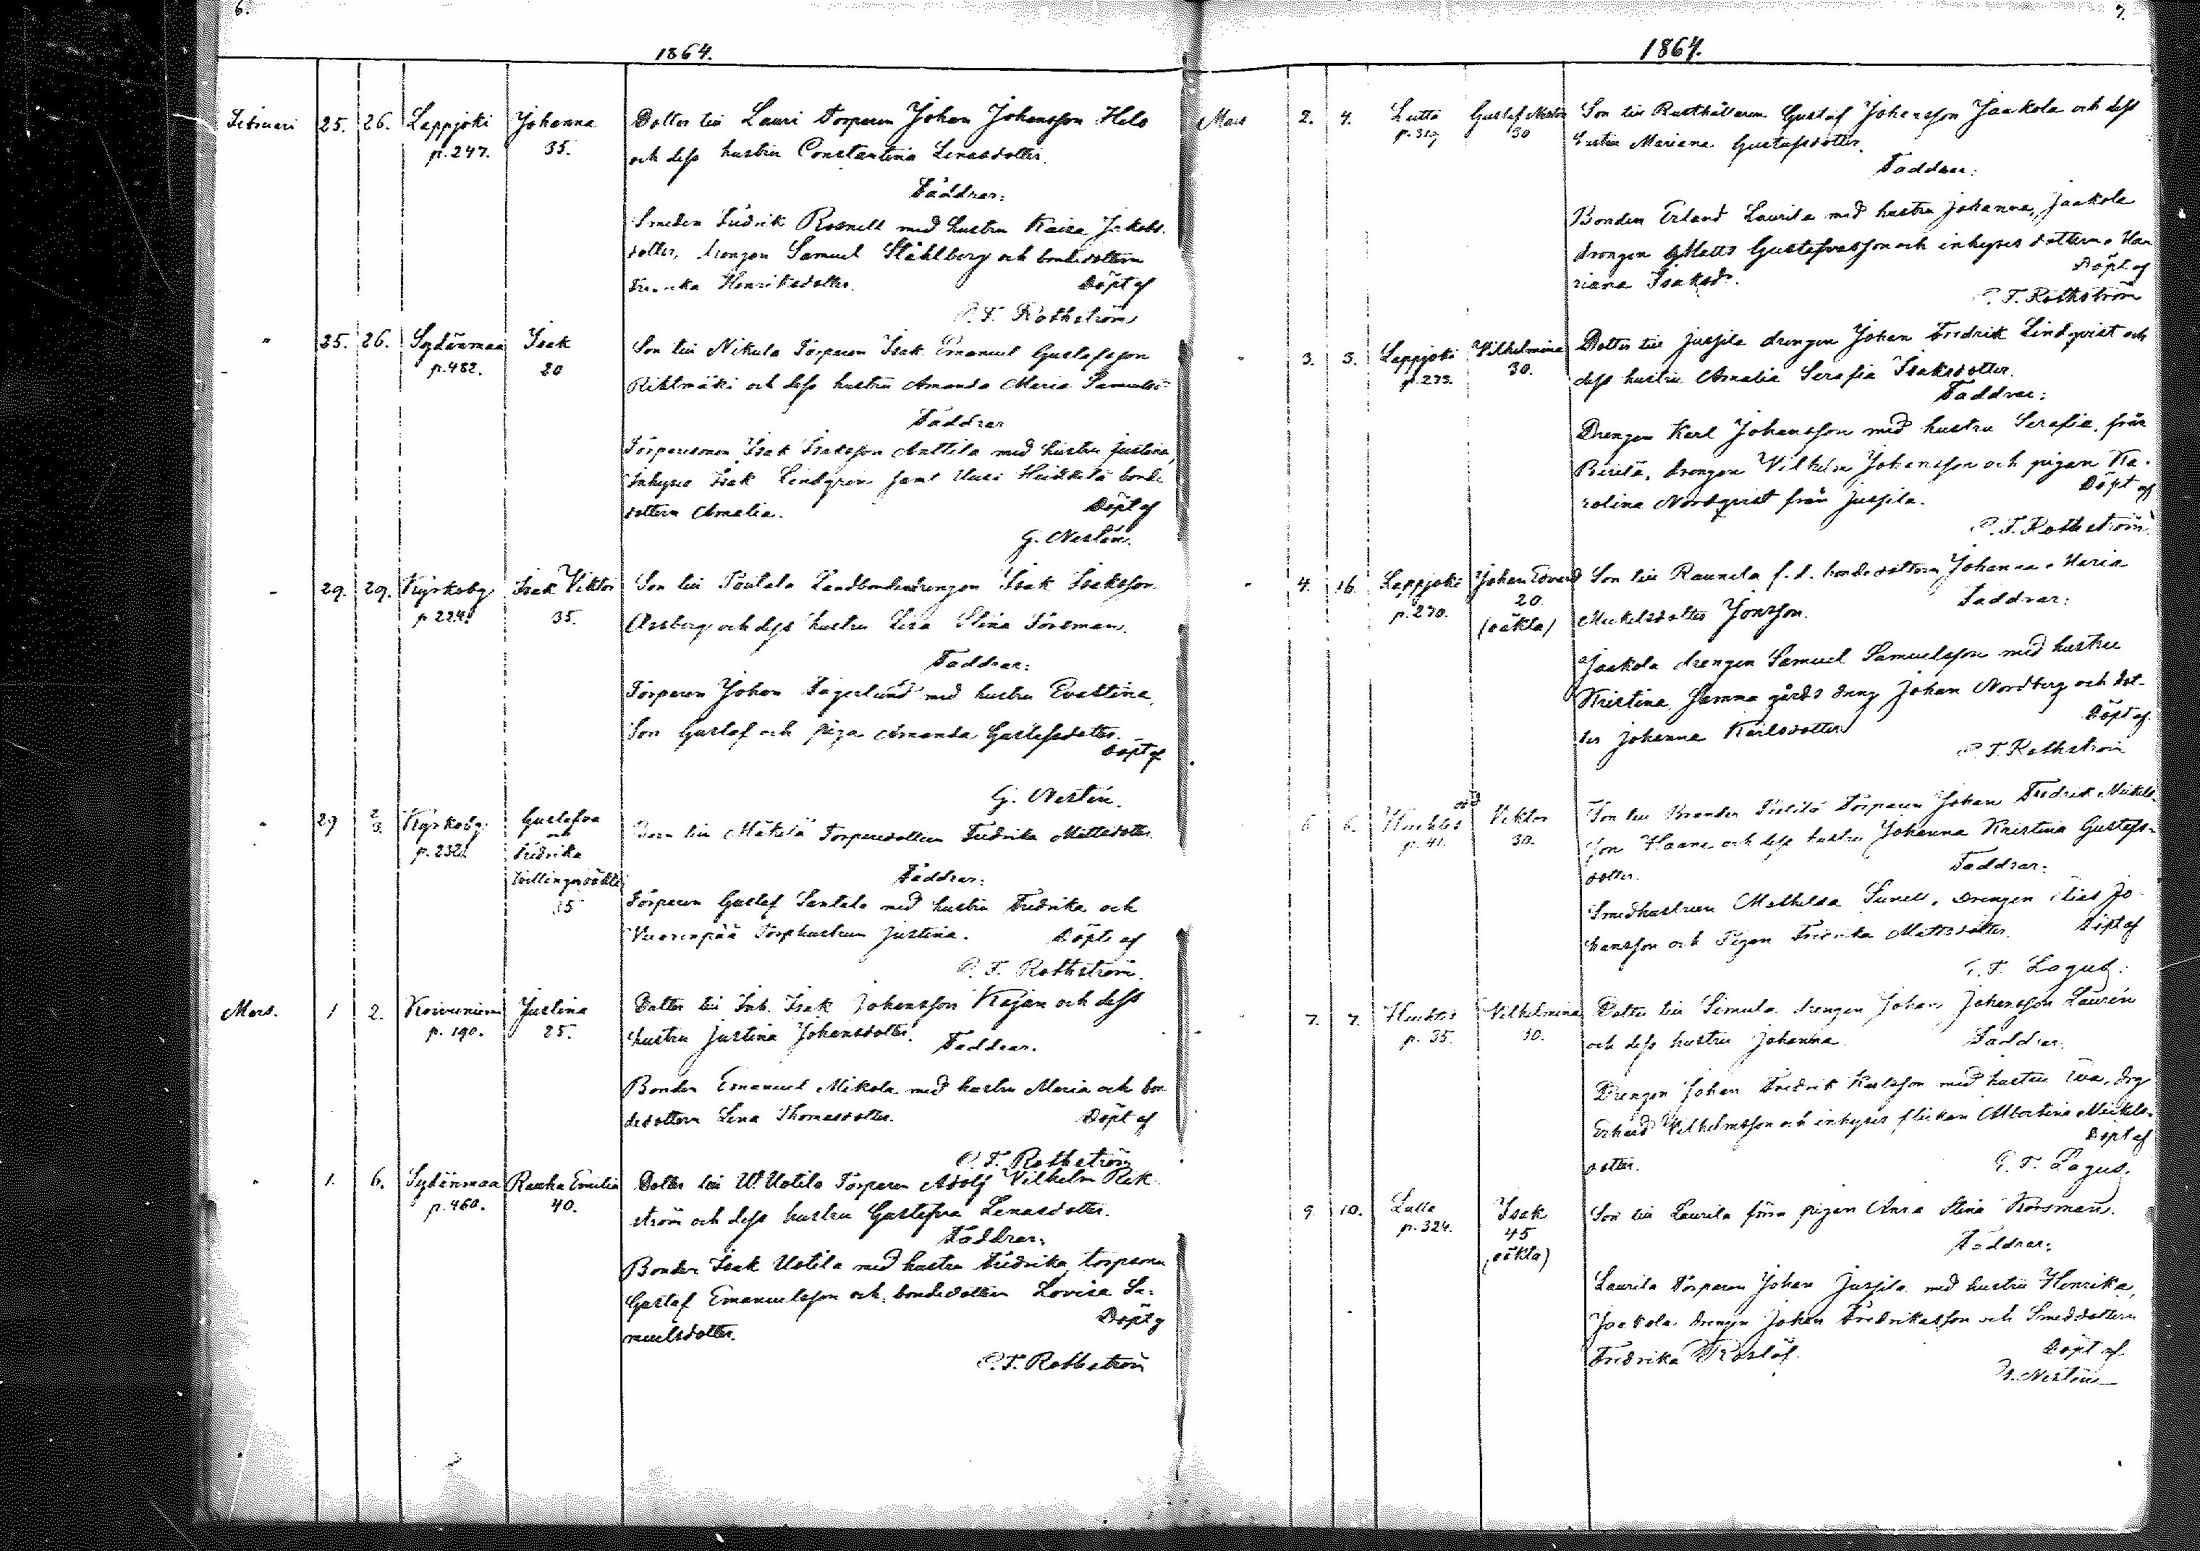 6.
1864.
Februari 25. 26. Lappjoki Johanna Dotter till Lauri torparen Johan Johansson Helo
p. 247. 35. och dess hustru Constantina Lenasdotter.
Faddrar:
Smeden Fredrik Rosnell med hustru Kaisa Jakobs-
dotter, drengen Samuel Ståhlberg och bondedottern
Fredrika Henriksdotter. Döpt af
P. F. Rothström
" 25. 26. Sydänmaa Isak Son till Nikula Torparen Isak Emanuel Gustafsson
p. 482. 20 Riktmäki och dess hustru Amanda Maria Samuels-
Faddrar
Torparesonen Isak Isaksson Anttila med hustru Justina,
Inhyses Isak Lindgren samt Uusi Heikkilä bonde
dottern Amalia. Döpt af
G. Nestén.
" 29. 29. Kyrkoby Isak Viktor Son till Landbondedrengen Isak Isaksson
p. 224. 35. och dess hustru Lisa Stina Forsman.
Faddrar:
Torparen Johan Fagerlund med hustru Evastina,
Son Gustaf och piga Amanda Gustafsdotter.
Döpt af
G. Nestén.
" 29 2/3. Kyrkoby Gustafva Barn till Mäkelä Torparedottern Fredrika Mattsdotter
p. 232. och
Fredrika
tvillingar oäkta Faddrar:
35 Torparen Gustaf Santala med hustru Fredrika och
Vuorenpää Torphustrun Justina. Döpte af
P. F. Rothström.
Mars. 1 2. Koivuniemi Justina Dotter till Inh. Isak Johansson Kajan och dess
p. 190. 25. hustru Justina Johansdotter.
Faddrar.
Bonden Emanuel Mikola med hustru Maria och bon-
dedottern Lena Thomasdotter. Döpt af
P. F. Rothström
" 1. 6. Sydänmaa Rauha Emilia Dotter till W. Uotila Torparen Adolf Vilhelm Rek-
p. 460. 40. ström och dess hustru Gustafva Lenasdotter.
Faddrar:
Bonden Isak Uotila med hustru Fredrika, torparen
Gustaf Emanuelsson och bondedottern Lovisa Sa-
muelsdotter. Döpt af
P. F. Rothström
7.
1864.
Mars 2. 4. Lutta Gustaf Nestor Son till Rusthållaren Gustaf Johansson Jaakola och dess
30 hustru Mariana Gustafsdotter.
Faddrar:
Bonden Erland Laurila med hustru Johanna, Jaakola
drengen Matts Gustafvasson och inhyses dottern Ma-
riana Isaksd. Döpt af
P. F. Rothström
" 3. 3. Lappjoki Vilhelmina Dotter till Jussila drengen Johan Fredrik Lindqvist och
p. 273. 30. dess hustru Amalia Serafia Isaksdotter.
Faddrar:
Drengen Karl Johansson med hustru Serafia, från
drengen Vilhelm Johansson och pigan Ka-
rolina Nordqvist från Jussila. Döpt af
P. F. Rothström
" 4. 16. Lappjoki Johan Edvard Son till Raunela f. d. bondedottern Johanna Maria
p. 270. 20. Mickelsdotter Jonsson. Faddrar:
(oäkta)
Jaakola drengen Samuel Samuelsson med hustru
Kristina, Samma gårds dreng Johan Nordberg och dot-
ter Johanna Karlsdotter. Döpt af
P. F. Rothström
6 6. Huchtis Viktor Son till Torparen Johan Fredrik Mickels-
p. 41. 30. son Haane och dess hustru Johanna Kristina Gustafs-
dotter. Faddrar:
Smedhustrun Mathilda Sunell, drengen Elias Jo-
hansson och Pigan Fredrika Mattsdotter. Döpt af
G. T. Lagus.
7. 7. Huchtis Vilhelmina Dotter till Simula drengen Johan Johansson Laurén
p. 35. 30. och dess hustru Johanna. Faddrar.
Drengen Johan Fredrik Karlsson med hustru Eva, drg
Erhard Vilhelmsson och inhyses flickan Albertina Mickels-
dotter. Döpt af
G. T. Lagus.
9 10. Lutta Isak Son till Laurila förra pigan Anna Stina Korsman.
p. 324. 45
(oäkta) Faddrar:
Laurila Torparen Johan Jussila med hustru Henrika,
Jaakola drengen Johan Fredriksson och Smeddottern
Fredrika Roslöf. Döpt af
G. Nestén